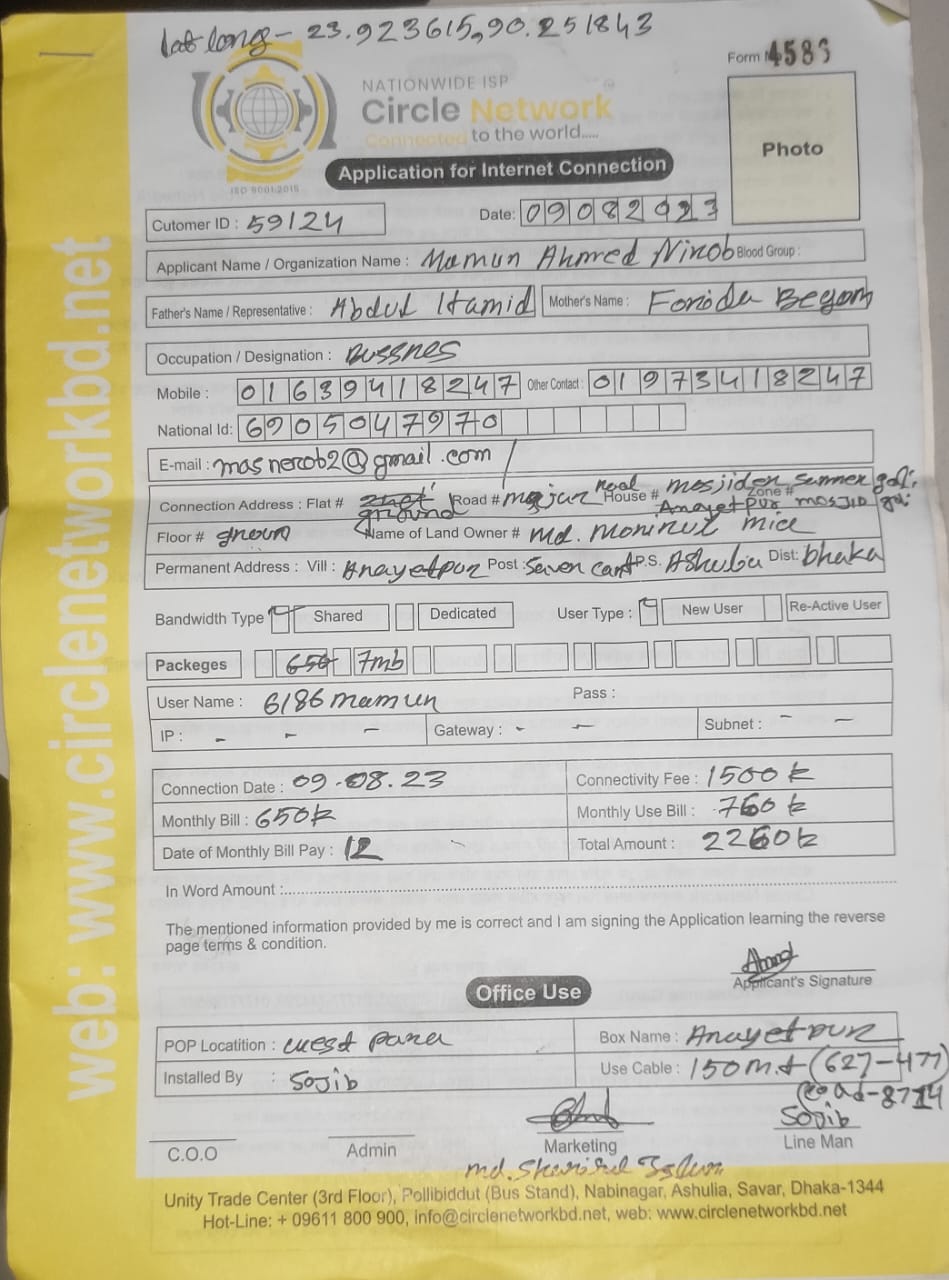 lat long - 23.923615,90.251843
Form No 4583
NATIONWIDE ISP
Circle Network
Connected to the world.....
ISO 9001:2015
Application for Internet Connection
Photo
Cutomer ID : 59124
Date: 09082023
Applicant Name / Organization Name : Mamun Ahmed Nirob Blood Group :
Father's Name / Representative : Abdul Hamid Mother's Name : Forida Begom
Occupation / Designation : Bussnes
Mobile : 01639418247 Other Contact : 01973418247
National Id: 6905047970
E-mail : masnerob2@gmail.com
Connection Address : Flat # ground Road # House # mosjider samner goli, Zone # Anayetpur mosjid goli
Floor # groun Name of Land Owner # md. Monirul mice
Permanent Address : Vill : Anayetpur Post : Seven cant P.S. Ashulia Dist: Dhaka
Bandwidth Type Shared Dedicated User Type : New User Re-Active User
Packeges 650 7mb
User Name : 6186mamun Pass :
IP : - - - Gateway : - - Subnet : - -
Connection Date : 09-08.23 Connectivity Fee : 1500k
Monthly Bill : 650k Monthly Use Bill : 760k
Date of Monthly Bill Pay : 12 Total Amount : 2260k
In Word Amount :
The mentioned information provided by me is correct and I am signing the Application learning the reverse
page terms & condition.
Applicant's Signature
Office Use
POP Locatition : west para Box Name : Anayetpur
Installed By : Sojib Use Cable : 150m.t (627-477)
Road-8714
Sojib
C.O.O Admin Marketing Line Man
md. Sharirul Islam
Unity Trade Center (3rd Floor), Pollibiddut (Bus Stand), Nabinagar, Ashulia, Savar, Dhaka-1344
Hot-Line: + 09611 800 900, info@circlenetworkbd.net, web: www.circlenetworkbd.net
web: www.circlenetworkbd.net